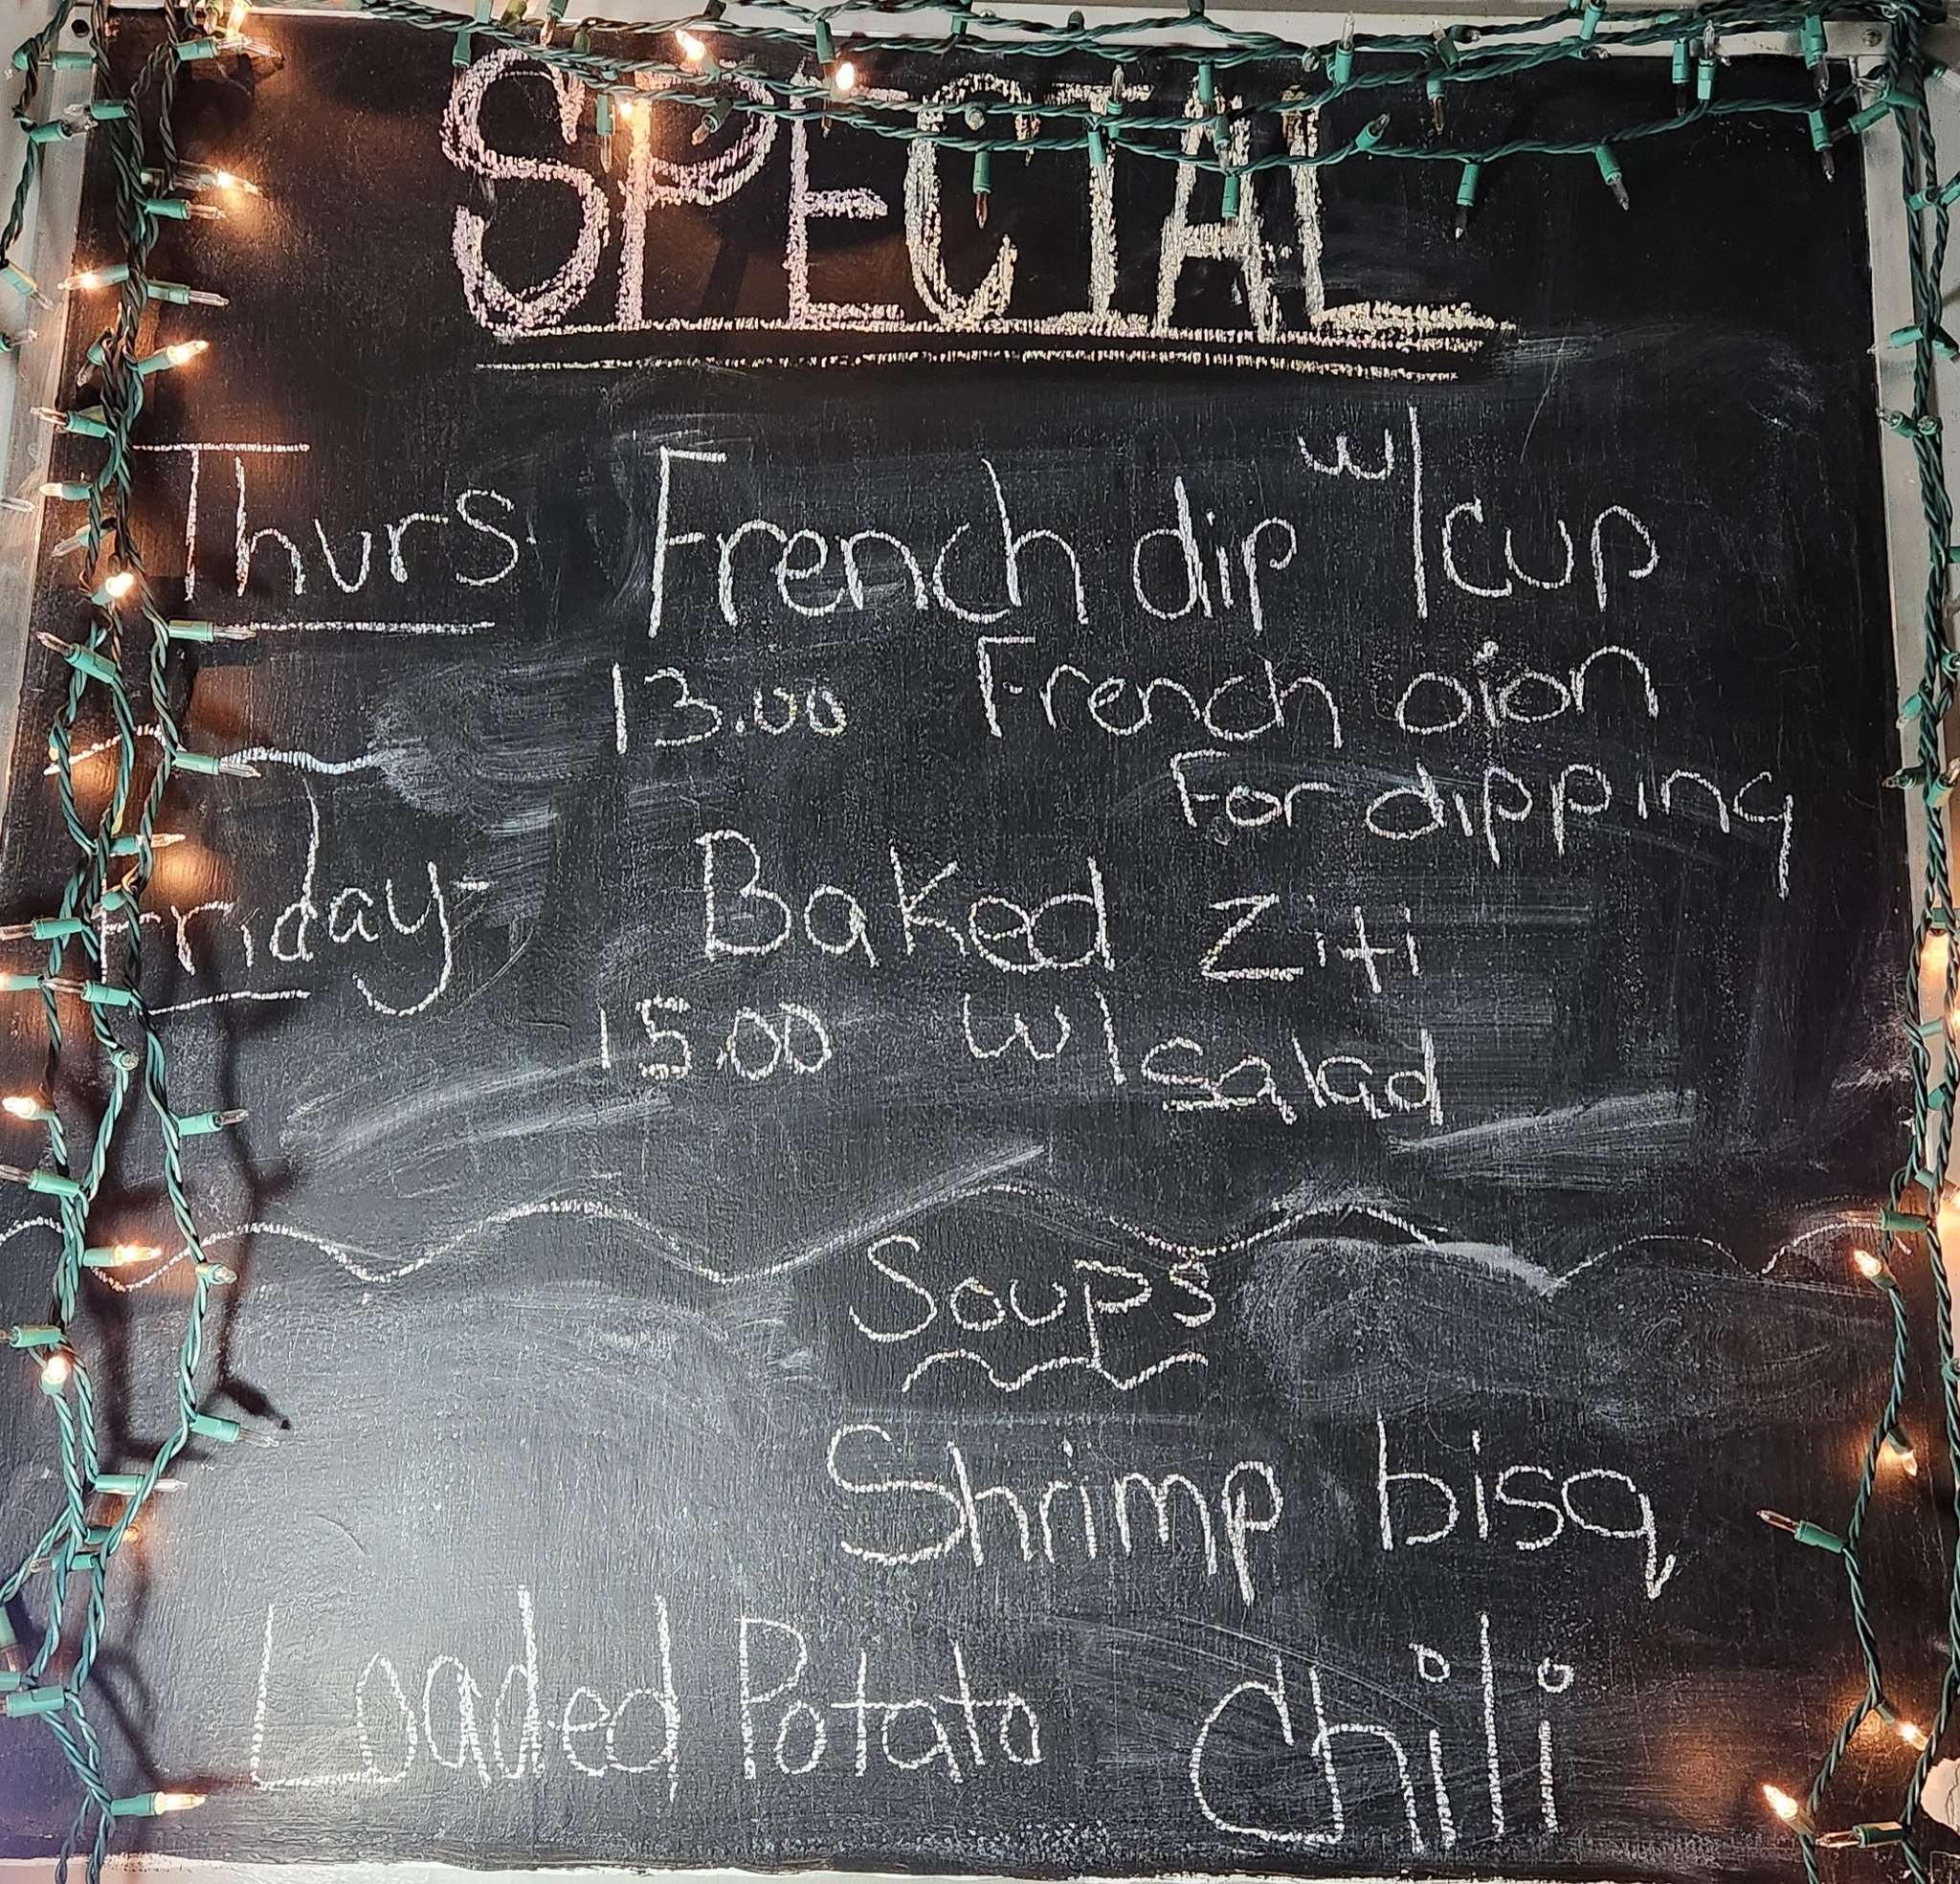 SPECIAL
Thurs French dip w/ cup
13.00 French oion
For dipping
Friday- Baked Ziti
15.00 w/ salad
Soups
Shrimp bisq
Loaded Potato Chili